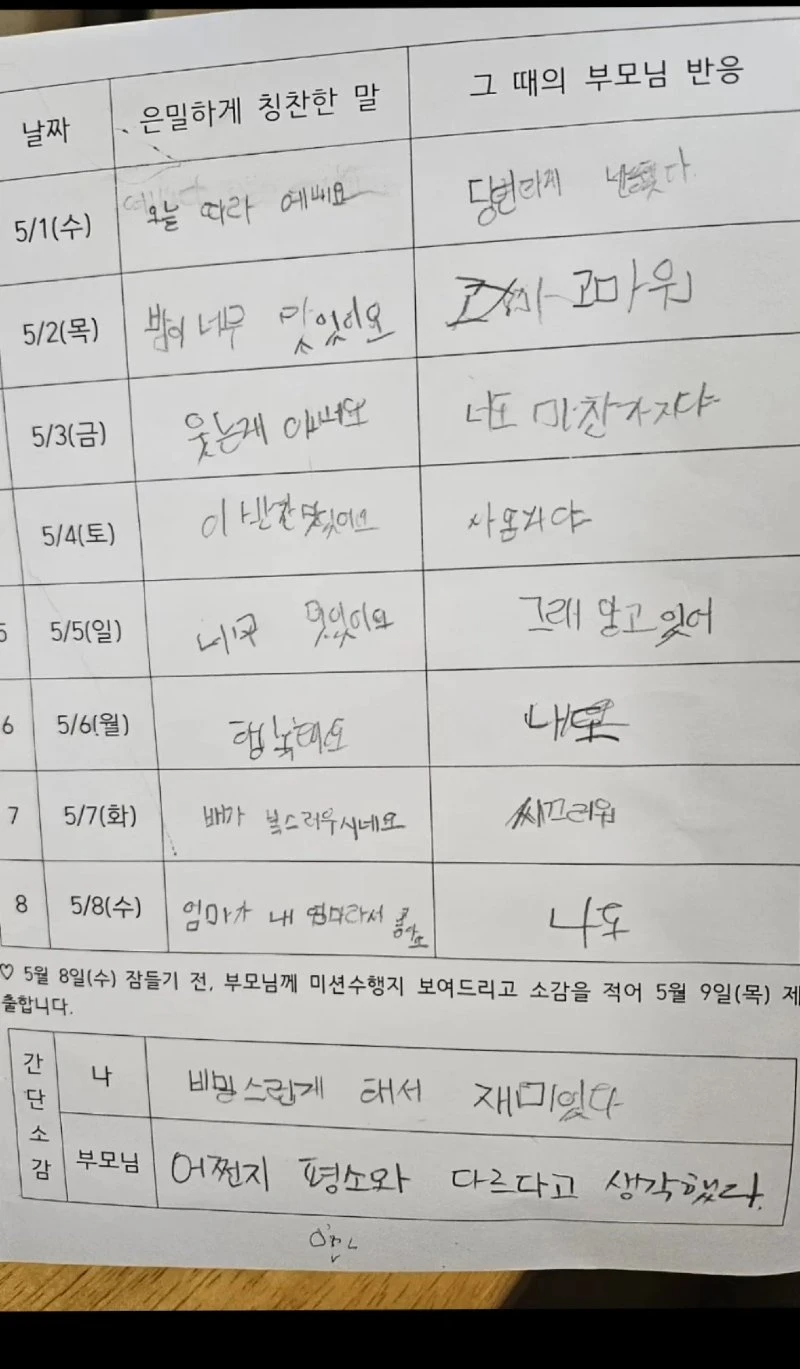 날짜 은밀하게 칭찬한 말 그 때의 부모님 반응
5/1(수) 오늘 따라 예뻐요 당연하게
5/2(목) 밥이 너무 맛있어요 고마워
5/3(금) 웃는게 너도 마찬가지야
5/4(토) 이 반찬 맛있어요
5 5/5(일) 너무 멋있어요 그래 알고 있어
6 5/6(월) 행복해요 내도
7 5/7(화) 배가 복스러우시네요 씨끄러워
8 5/8(수) 엄마가 내 엄마라서 좋아요 나도
♡ 5월 8일(수) 잠들기 전, 부모님께 미션수행지 보여드리고 소감을 적어 5월 9일(목) 제
출합니다.
간단소감
나 비밀스럽게 해서 재미있다
부모님 어쩐지 평소와 다르다고 생각했다.